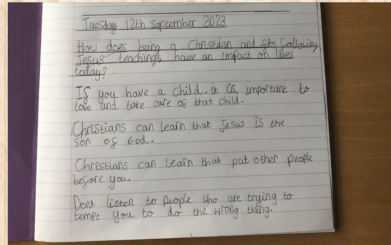 Tuesday 12th September 2023
How does being a Christian and following
Jesus' teachings have an impact on lives
today?
If you have a child, it is important to
love and take care of that child.
Christians can learn that Jesus is the
son of God.
Christians can learn that put other people
before you.
Dont listen to people who are trying to
tempt you to do the wrong thing.